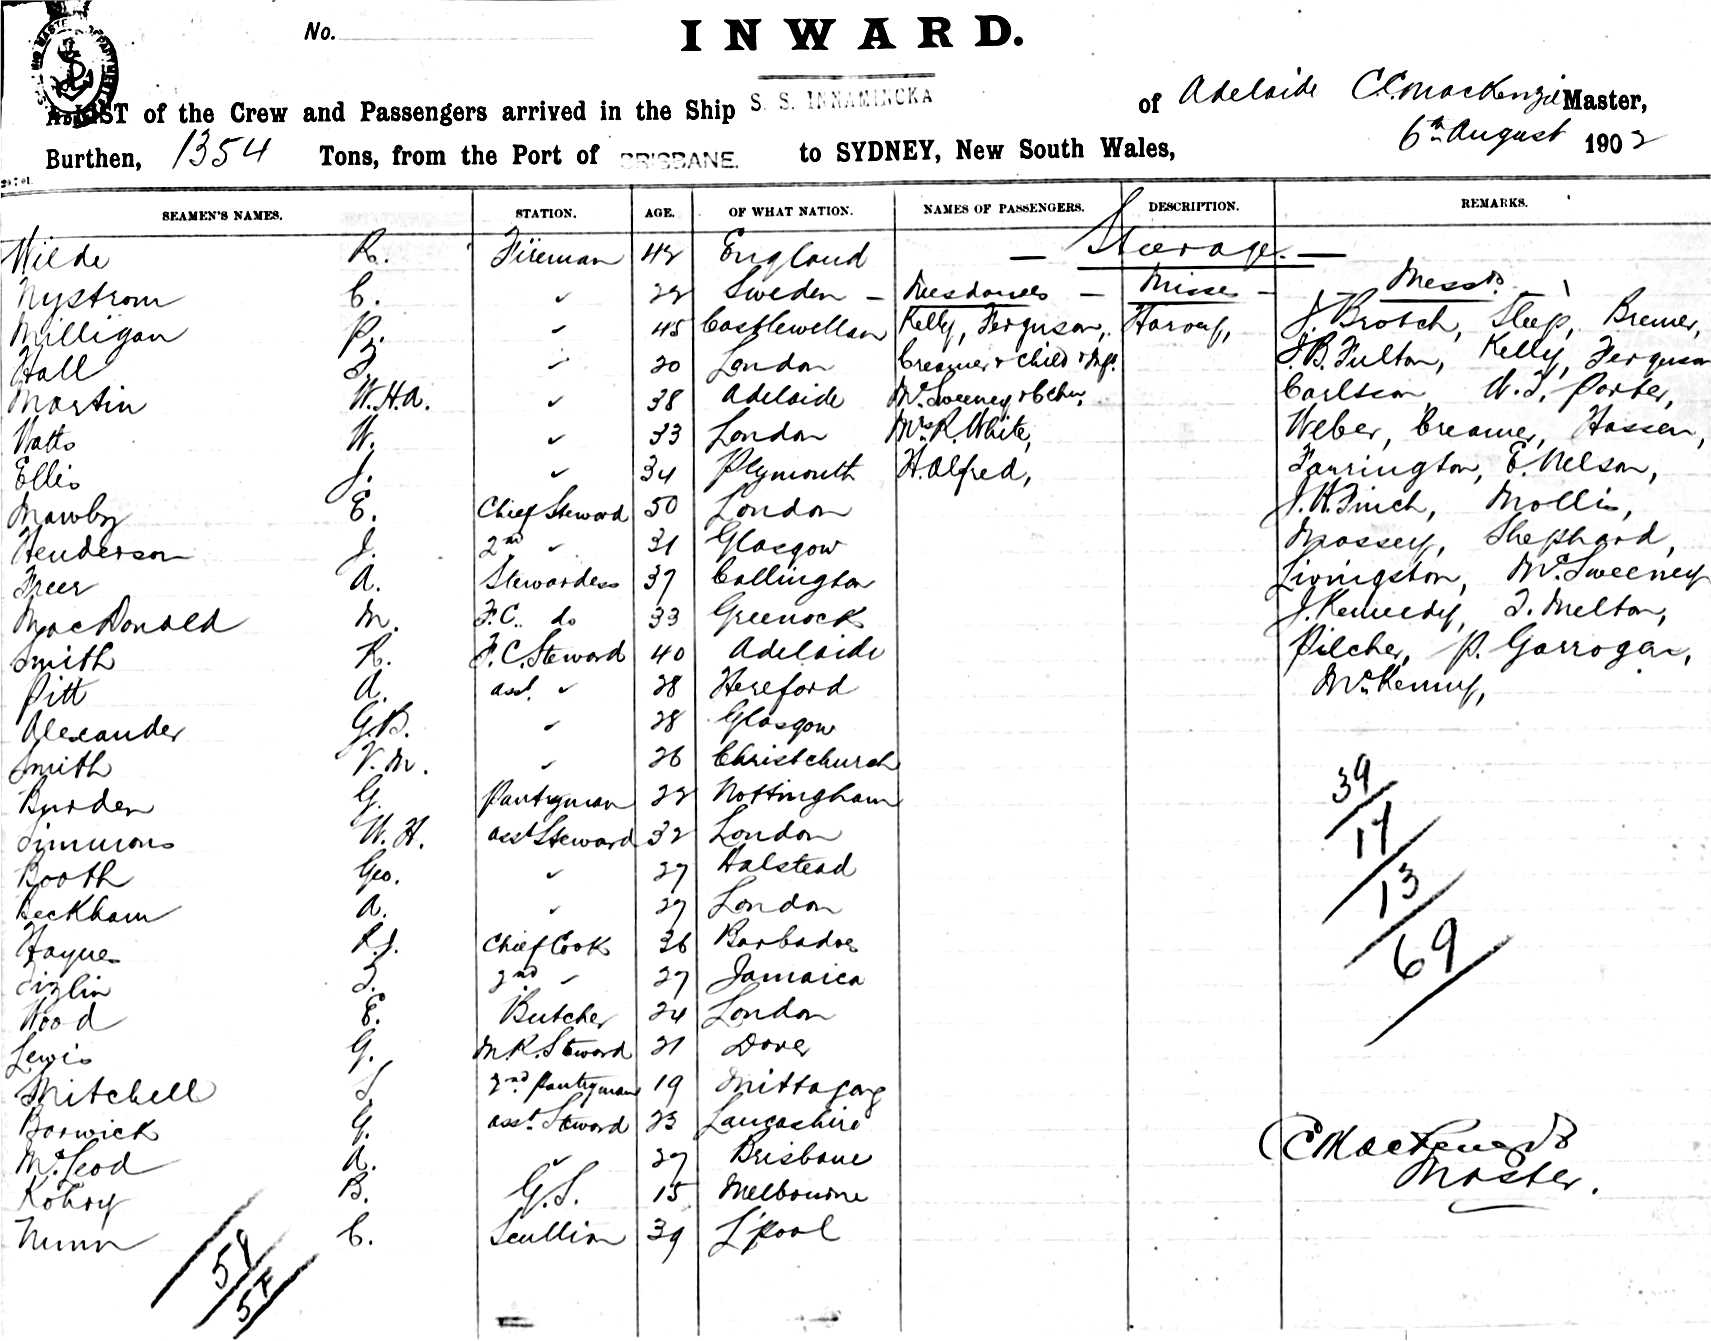 No.
INWARD.
A LIST of the Crew and Passengers arrived in the Ship S. S. INNAMINCKA of Adelaide C.C. Mackenzie Master,
Burthen, 1354 Tons, from the Port of BRISBANE. to SYDNEY, New South Wales, 6th August 1902
SEAMEN'S NAMES. STATION. AGE. OF WHAT NATION. NAMES OF PASSENGERS. DESCRIPTION. REMARKS.
Wilde R. Fireman 42 England — Steerage. —
Nystrom C. " 22 Sweden — Mesdames — Misses — Messrs. —
Milligan P. " 45 Castlewellan Kelly, Ferguson, Harvey, J. Brotch, Sleep, Bremer,
Hall " 20 London Creamer & Child & Inft. J.B. Fulton, Kelly, Ferguson
Martin W.H.A. " 38 Adelaide McSweeney & Chn, Carlsson W.T. Porter,
Watts W. " 33 London Mrs R. White, Weber, Creamer, Hassen,
Ellis J. " 34 Plymouth H. Alfred, Farrington, E. Nelson,
Mawby E. Chief Steward 50 London J.H. Finch, Mollis,
Henderson J. 2nd " 31 Glasgow Massey, Shephard,
Freer A. Stewardess 37 Collington Livingston, McSweeney
MacDonald M. F.C. do 33 Greenock J. Kennedy, T. Melton,
Smith R. F.C. Steward 40 Adelaide Pilcher, P. Garrogan,
Pitt A. asst. " 28 Hereford McKenny,
Alexander G.B. " 28 Glasgow
Smith V.M. " 26 Christchurch
Burden G. Pantryman 22 Nottingham
Simmons W.H. asst Steward 32 London
Booth Geo. " 27 Halstead
Beckham A. " 27 London
Haynes R.J. Chief Cook 36 Barbados
Tizlin 2nd " 27 Jamaica
Wood E. Butcher 24 London
Lewis G. M.R. Steward 21 Dover
Mitchell S 2nd Pantryman 19 Mittagong
Barwick G. asst Steward 23 Lancashire
McLeod A. " 27 Brisbane
B. G.S. 15 Melbourne
Nunn C. Scullion 39 L'pool
39
17
13
69
C C Mackenzie
Master.
58
57